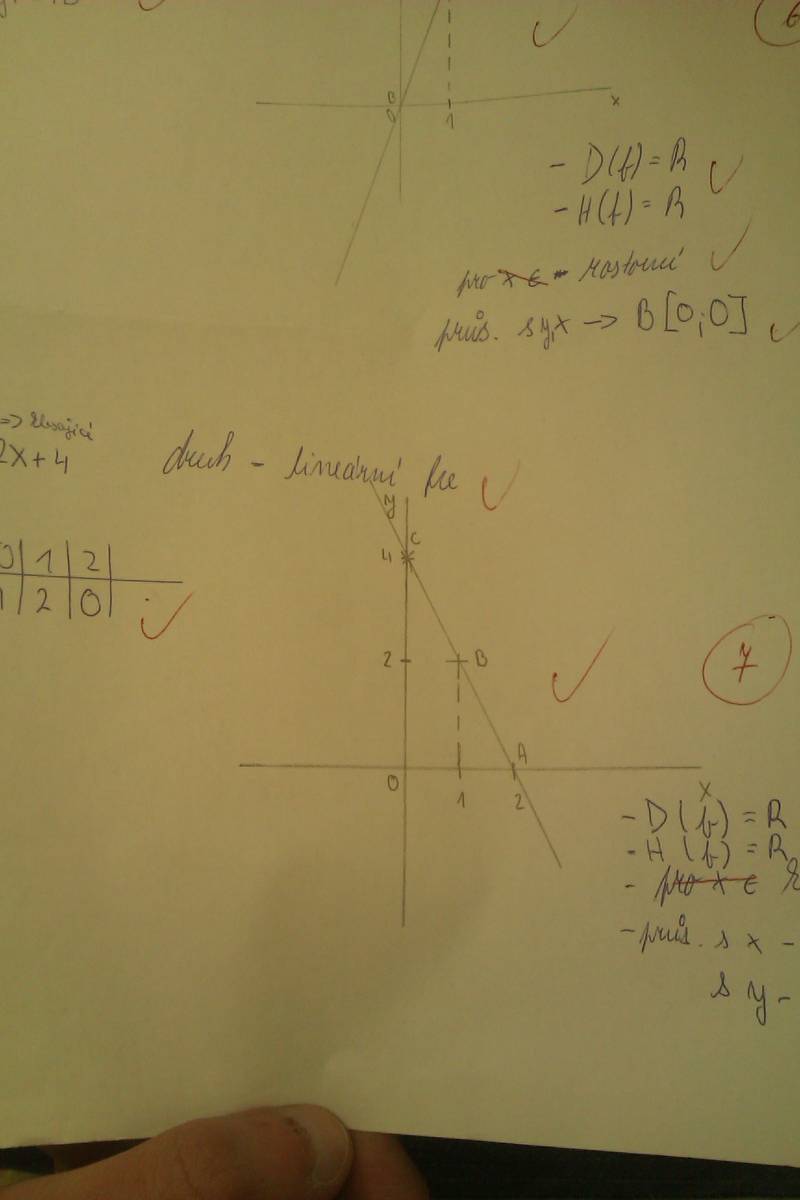 0
x
0
1
- D(f) = R
- H(f) = R
pro x ∈ - rostoucí
průs. s y,x -> B[0;0]
=> klesající
2x+4
druh - lineární fce
y
C
4
0 | 1 | 2
2 | 0
2
B
7
A
0
1
2
x
- D(f) = R
- H(f) = R
- pro x ∈
- průs. s x -
s y -